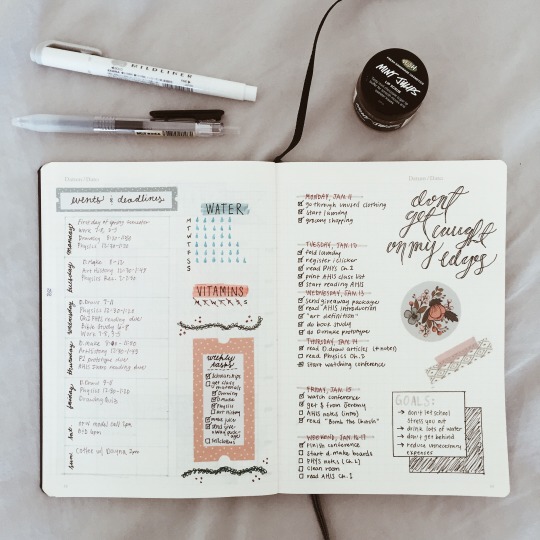 MILDLINER
MINT JULIPS
LIP SCRUB
events & deadlines
monday
First day of spring semester
Work 7-8, 3-5
Drawing 8:30-11:20
Physics 12:30-1:20
tuesday
Art History 12:30-1:45
wednesday
Physics 12:30-1:20
Bible Study 6-8
thursday
Art History 12:30-1:45
AHIS Same reading due!
friday
D.Draw 9-11
Physics 12:30-1:20
sat.
sun.
coffee w/
WATER
M
T
W
T
F
S
S
VITAMINS
M T W T F S S
weekly tasks
scholarships
get class materials
Drawing
D.Make
Physics
Art History
make juice
send give-
away pack-
ages
MONDAY, JAN 11
go through unused clothing
start laundry
grocery shopping
TUESDAY, JAN 12
fold laundry
register iclicker
read PHYS Ch. 1
print AHIS class list
start reading AHIS
WEDNESDAY, JAN 13
send giveaway packages
read AHIS introduction
"art definition"
do book study
do D.make prototype
THURSDAY, JAN 14
read D.draw articles
read Physics Ch. 2
start watching conference
FRIDAY, JAN 15
watch conference
get $ from Jeremy
AHIS notes (intro)
read "Bomb the Unush"
WEEKEND, JAN 16-17
finish conference
start d.make boards
PHYS notes (Ch. 1)
clean room
read AHIS Ch. 1
don't
get caught
on my
edges
GOALS:
→ don't let school
stress you out
→ drink lots of water
→ don't get behind
→ reduce unnecessary
expenses